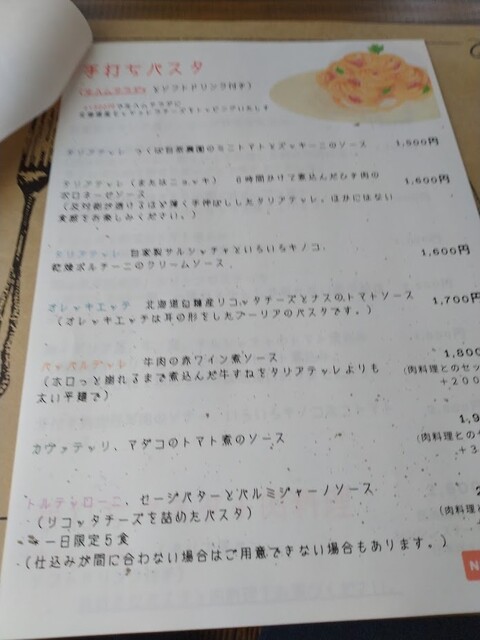 手打ちパスタ
(ミニサラダ、ソフトドリンク付き)
タリアテッレ つくば自然農園のミニトマトとズッキーニのソース 1,500円
タリアテッレ(またはニョッキ) 6時間かけて煮込んだひき肉の 1,600円
ボロネーゼソース
(反対側が透けるほど薄く手伸ばししたタリアテッレ、ほかにはない
食感をお楽しみください。)
タリアテッレ 自家製サルシッチャといろいろキノコ、 1,600円
乾燥ポルチーニのクリームソース
オレッキエッテ 北海道白糠産リコッタチーズとナスのトマトソース 1,700円
(オレッキエッテは耳の形をしたプーリアのパスタです。)
パッパルデッレ 牛肉の赤ワイン煮ソース 1,800
(ホロっと崩れるまで煮込んだ牛すねをタリアテッレよりも (肉料理とのセッ
太い平麺で) +200
カヴァテッリ、マダコのトマト煮のソース 1,9
(肉料理との
+3
トルテッローニ、セージバターとパルミジャーノソース 2
(リコッタチーズを詰めたパスタ) (肉料理と
一日限定5食
(仕込みが間に合わない場合はご用意できない場合もあります。)
N